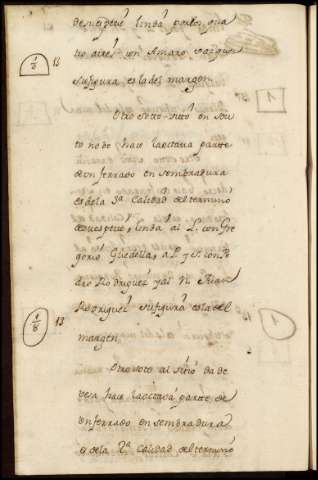 dequespeve linda por los qua
tro aires con Amaro Vazquez
su figura es la del margen.
1/8 13
Otro Soto-Suto en Sou
to no de hace la octava parte
de un ferrado en sembradura
es de la 3ª Calidad del termino
dequespeve y linda al L. con Gre
gorio Guedella, a L. y S. con Pe
dro Rodriguez y al N. Juan
Rodriguez su figura es la del
margen.
1/8 13
Otro soto al sitio da de
vesa hace la octava parte de
un ferrado en sembradura
es de la 2ª Calidad del termino